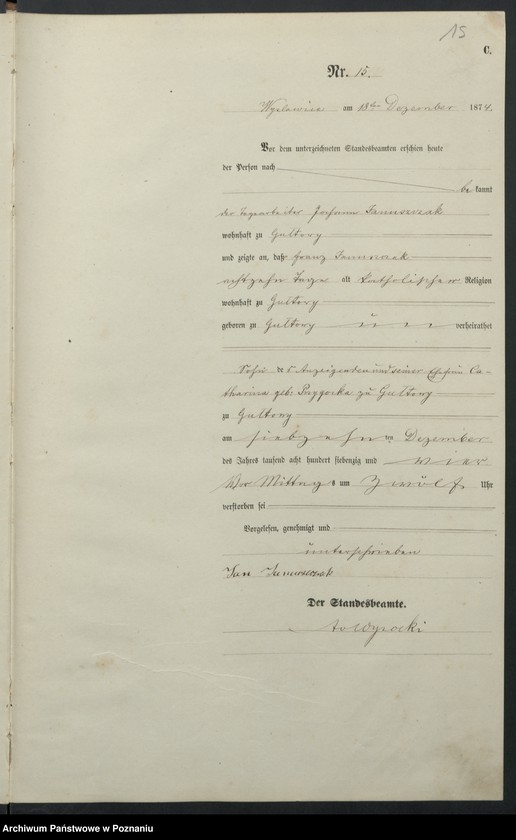 15
C.
Nr. 15.
am 18ten Dezember 1874.
Vor dem unterzeichneten Standesbeamten erschien heute
der Person nach
bekannt
der Tagearbeiter Johann Januszczak
wohnhaft zu Gultowy
und zeigte an, daß Franz Januszczak
achtzehn Tage alt katholischer Religion
wohnhaft zu Gultowy
geboren zu Gultowy un verheirathet
Sohn des Anzeigenden und seiner Ehefrau Ca-
tharina geb. zu Gultowy
zu Gultowy
am siebzehn ten Dezember
des Jahres tausend acht hundert siebenzig und vier
Vor Mittags um Zwölf Uhr
verstorben sei
Vorgelesen, genehmigt und
unterschrieben
Jan
Der Standesbeamte.
Archiwum Państwowe w Poznaniu